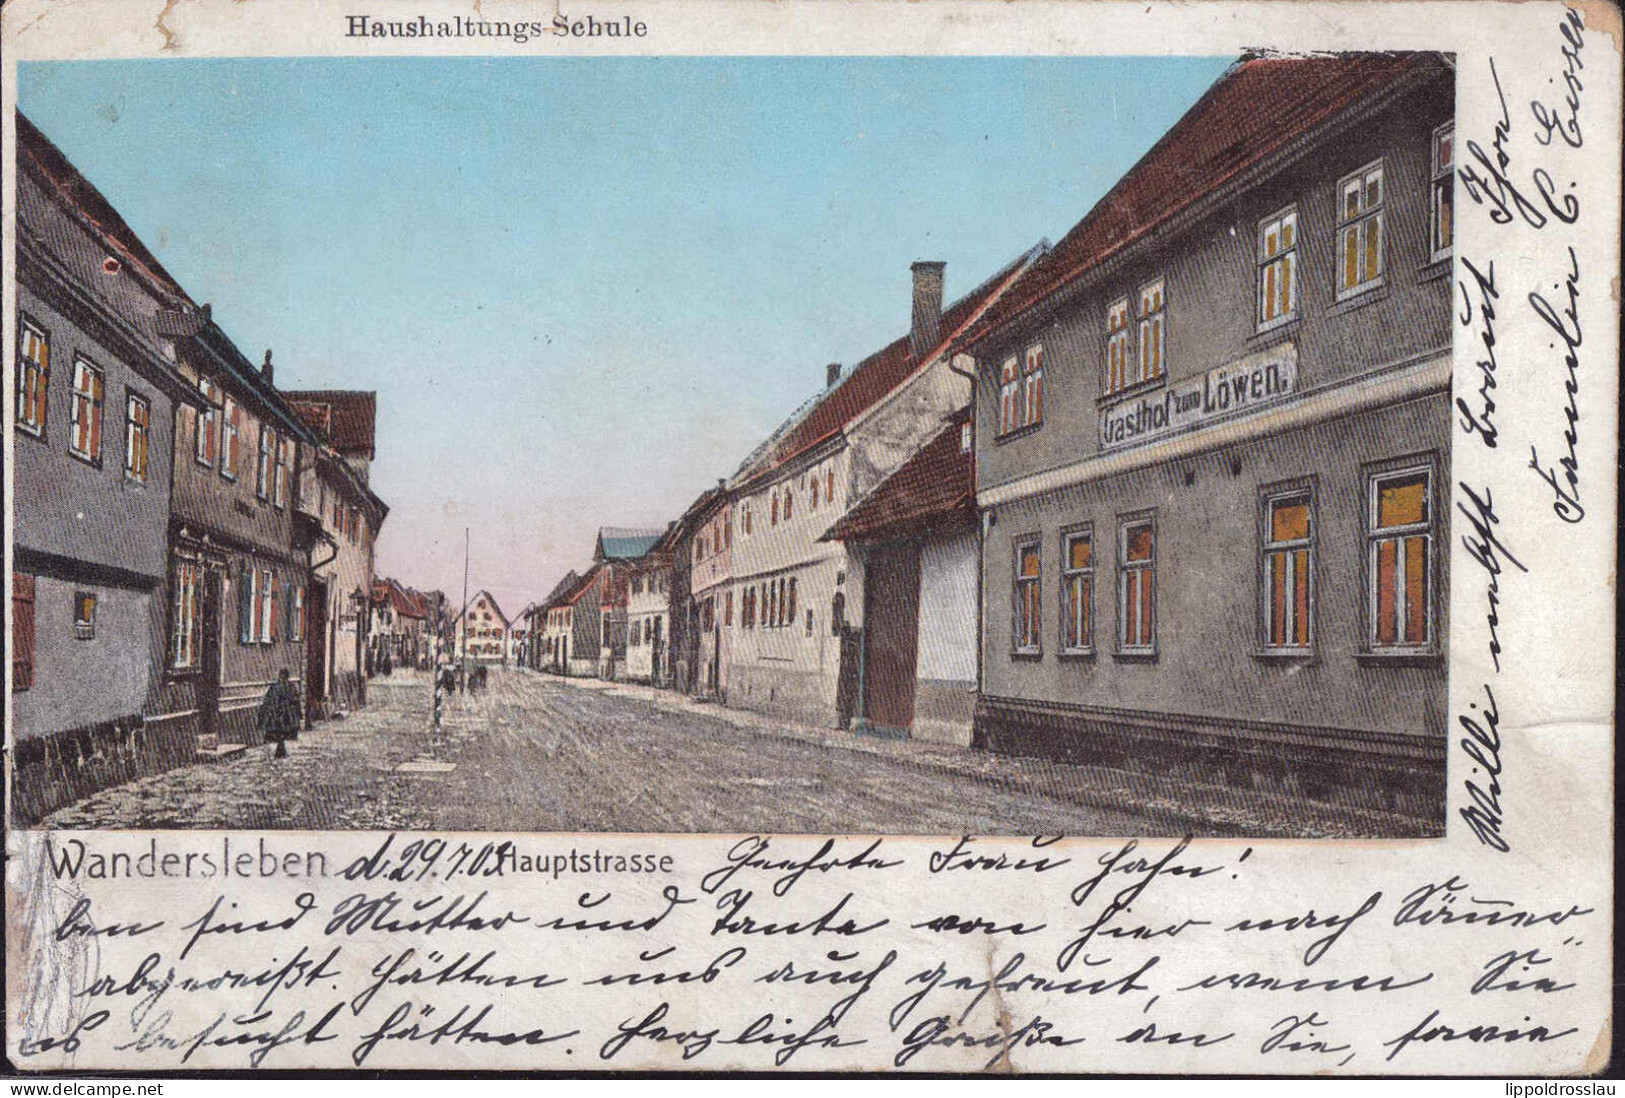 Haushaltungs-Schule
Gasthof zum Löwen.
Wandersleben d. 29.7.03. Hauptstrasse Geehrte Frau Hahn!
ben sind Mutter und Tante von hier nach
abgereißt. Hätten uns auch gefreut, wenn Sie
besucht hätten. Herzliche Grüße an Sie, sowie
Willi nebst Braut Ihre
Familie C.
lippoldrosslau